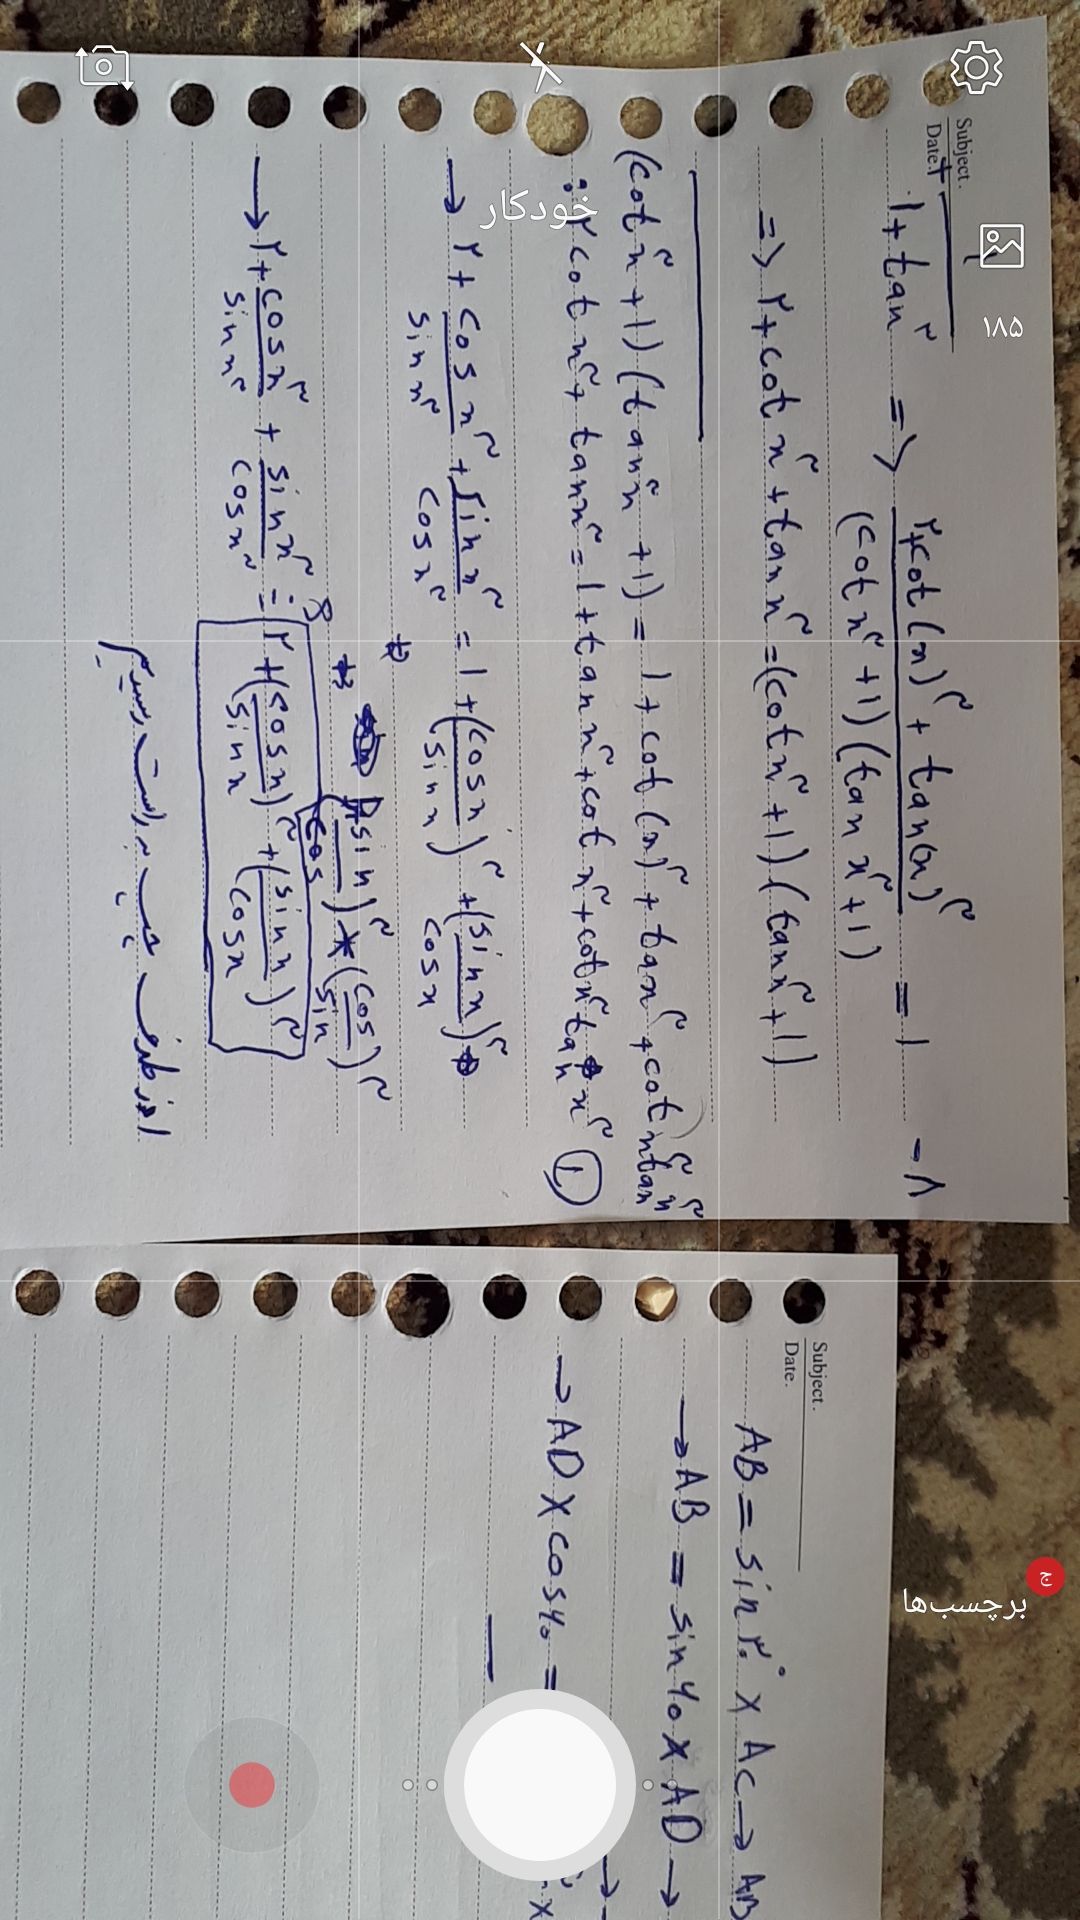 خودکار
۱۸۵
برچسب‌ها
ج
Subject.
Date.
1 + tan² => (۲+cot(x)² + tan(x)²) / ((cot x² + 1)(tan x² + 1)) = 1 - ۸
=> ۲ + cot x² + tan x² = (cot x² + 1)(tan x² + 1)
(cot x² + 1)(tan² x + 1) = 1 + cot(x)² + tan x² + cot x² tan x²
: ۲ cot x² + tan x² = 1 + tan x² + cot x² + cot x² tan x² ①
→ ۲ + cos x² / sin x² + sin x² / cos x² = 1 + (cos x / sin x)² + (sin x / cos x)²
(sin / cos)² × (cos / sin)²
→ ۲ + cos x² / sin x² + sin x² / cos x² = ۲ + (cos x / sin x)² + (sin x / cos x)²
از طرف چپ به راست رسیدیم
Subject.
Date.
AB = sin ۳۰° × AC → AB
→ AB = sin ۷۰ × AD →
→ AD × cos ۷۰ =